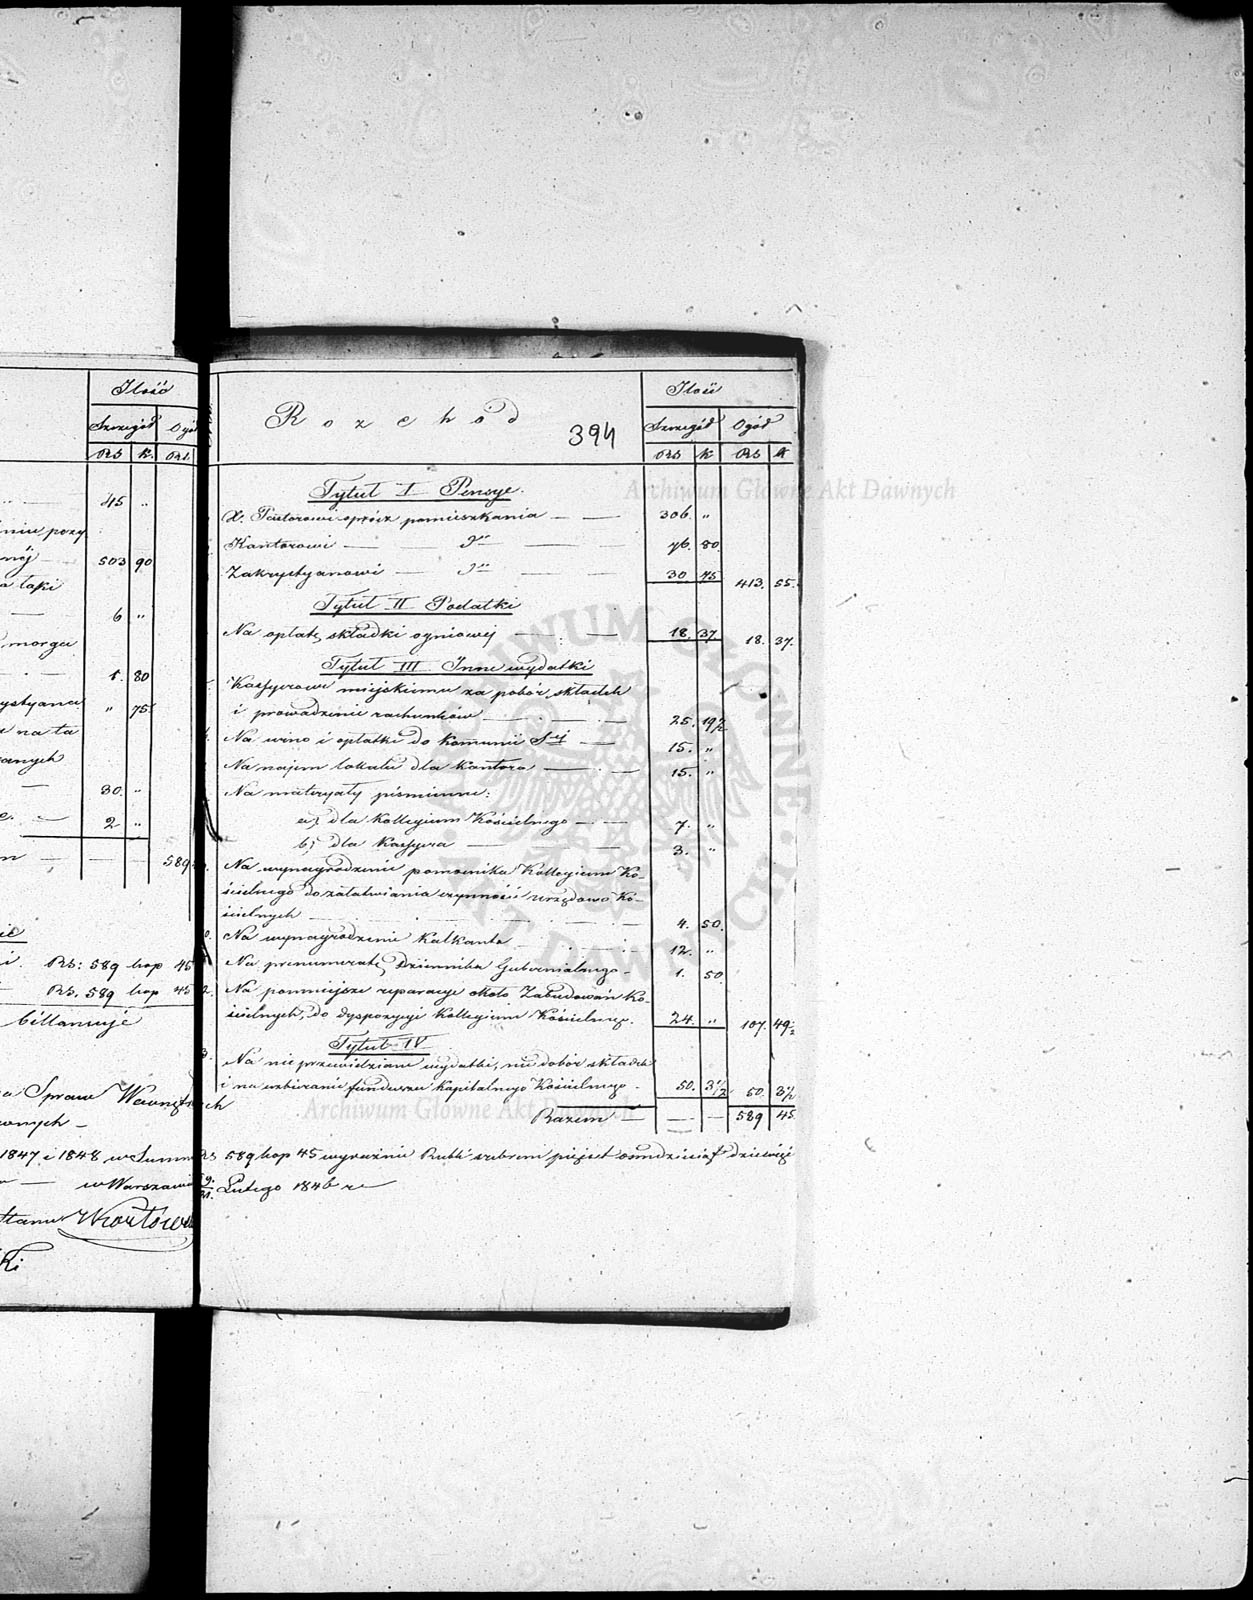 Ilość
Szczegół Ogół
Rs K. Rs.
45 "
503 90
6 "
morga
1. 80
" 75
na ta
30. "
2 "
589
Rs: 589 kop 45
Rs. 589 kop 45
billansuje
Spraw Wewnętrznych
1847 i 1848 w Summie
w Warszawie
Rozchód
394
Ilość
Szczegół Ogół
Rs K Rs K
Tytuł I Pensye.
X. Pastorowi oprócz pomieszkania — — 306. "
Kantorowi — — dto — 76. 80.
Zakrystyanowi — dto — 30. 75 413. 55.
Tytuł II Podatki
Na opłatę składki ogniowej — — 18. 37. 18. 37.
Tytuł III Inne wydatki
Kassyerowi miejskiemu za pobór składek
i prowadzenie rachunków — — 25. 19½
Na wino i opłatki do Komunii Stej — 15. "
Na najem lokalu dla Kantora — — 15. "
Na materyały piśmienne:
a) dla Kollegium Kościelnego — — 7. "
b) dla Kassyera — — 3. "
Na wynagrodzenie pomocnika Kollegium Ko-
ścielnego do załatwiania czynności urzędowo Ko-
ścielnych — — 4. 50.
Na wynagrodzenie Kalkanta — — 12. "
Na prenumeratę Dziennika Gubernialnego - 1. 50
Na pomniejsze reparacye około Zabudowań Ko-
ścielnych, do dyspozycyi Kollegium Kościelnego. 24. " 107. 49½
Tytuł IV
Na nieprzewidziane wydatki, nie dobór składek
i na uzbieranie funduszu Kapitalnego Kościelnego - 50. 3½ 50. 3½
Razem — — — 589 45.
Rs 589 kop 45 wyraźnie Rubli srebrem pięćset ośmdziesiąt dziewięć
Lutego 1846 r.
Archiwum Główne Akt Dawnych
Archiwum Główne Akt Dawnych
ARCHIWUM GŁÓWNE AKT DAWNYCH